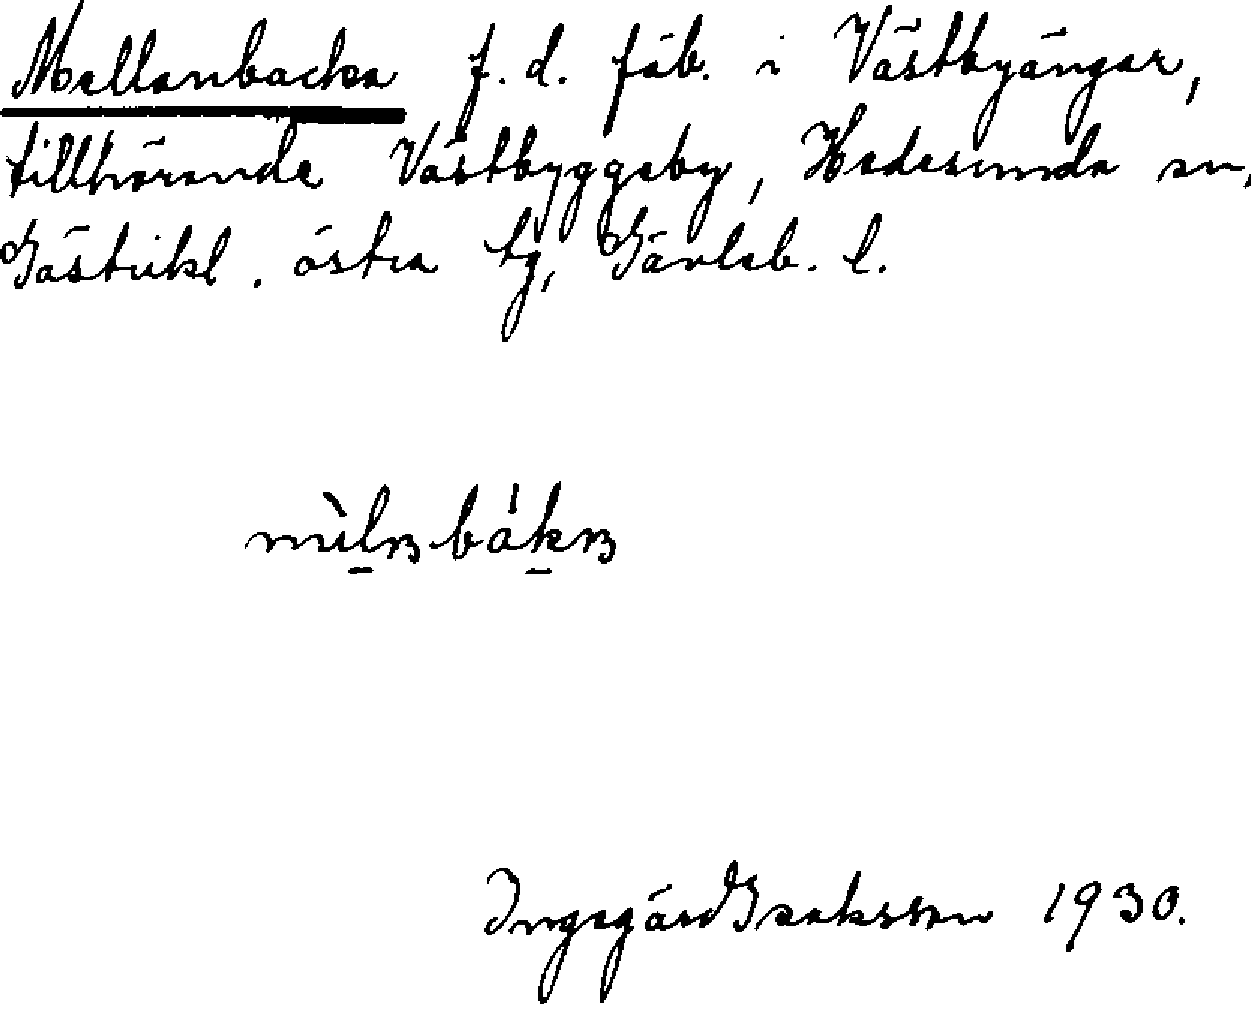 Mellanbacka f. d. fäb. i Västbyängar,
tillhörande Västbyggeby, Hedesunda sn,
Gästrikl. östra tg, Gävleb. l.
Ingegärd Isaksson 1930.